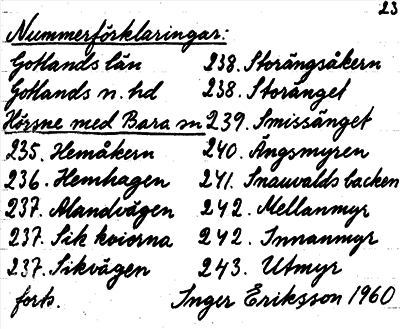 23
Nummerförklaringar:
Gotlands län 238. Storängsåkern
Gotlands n. hd 238. Storänget
Hörsne med Bara sn 239. Smissänget
235. Hemåkern 240. Ängsmyren
236. Hemhagen 241. Snauvalds backen
237. Alandvägen 242. Mellanmyr
237. Sik koiorna 242. Innanmyr
237. Sikvägen 243. Utmyr
forts. Inger Eriksson 1960